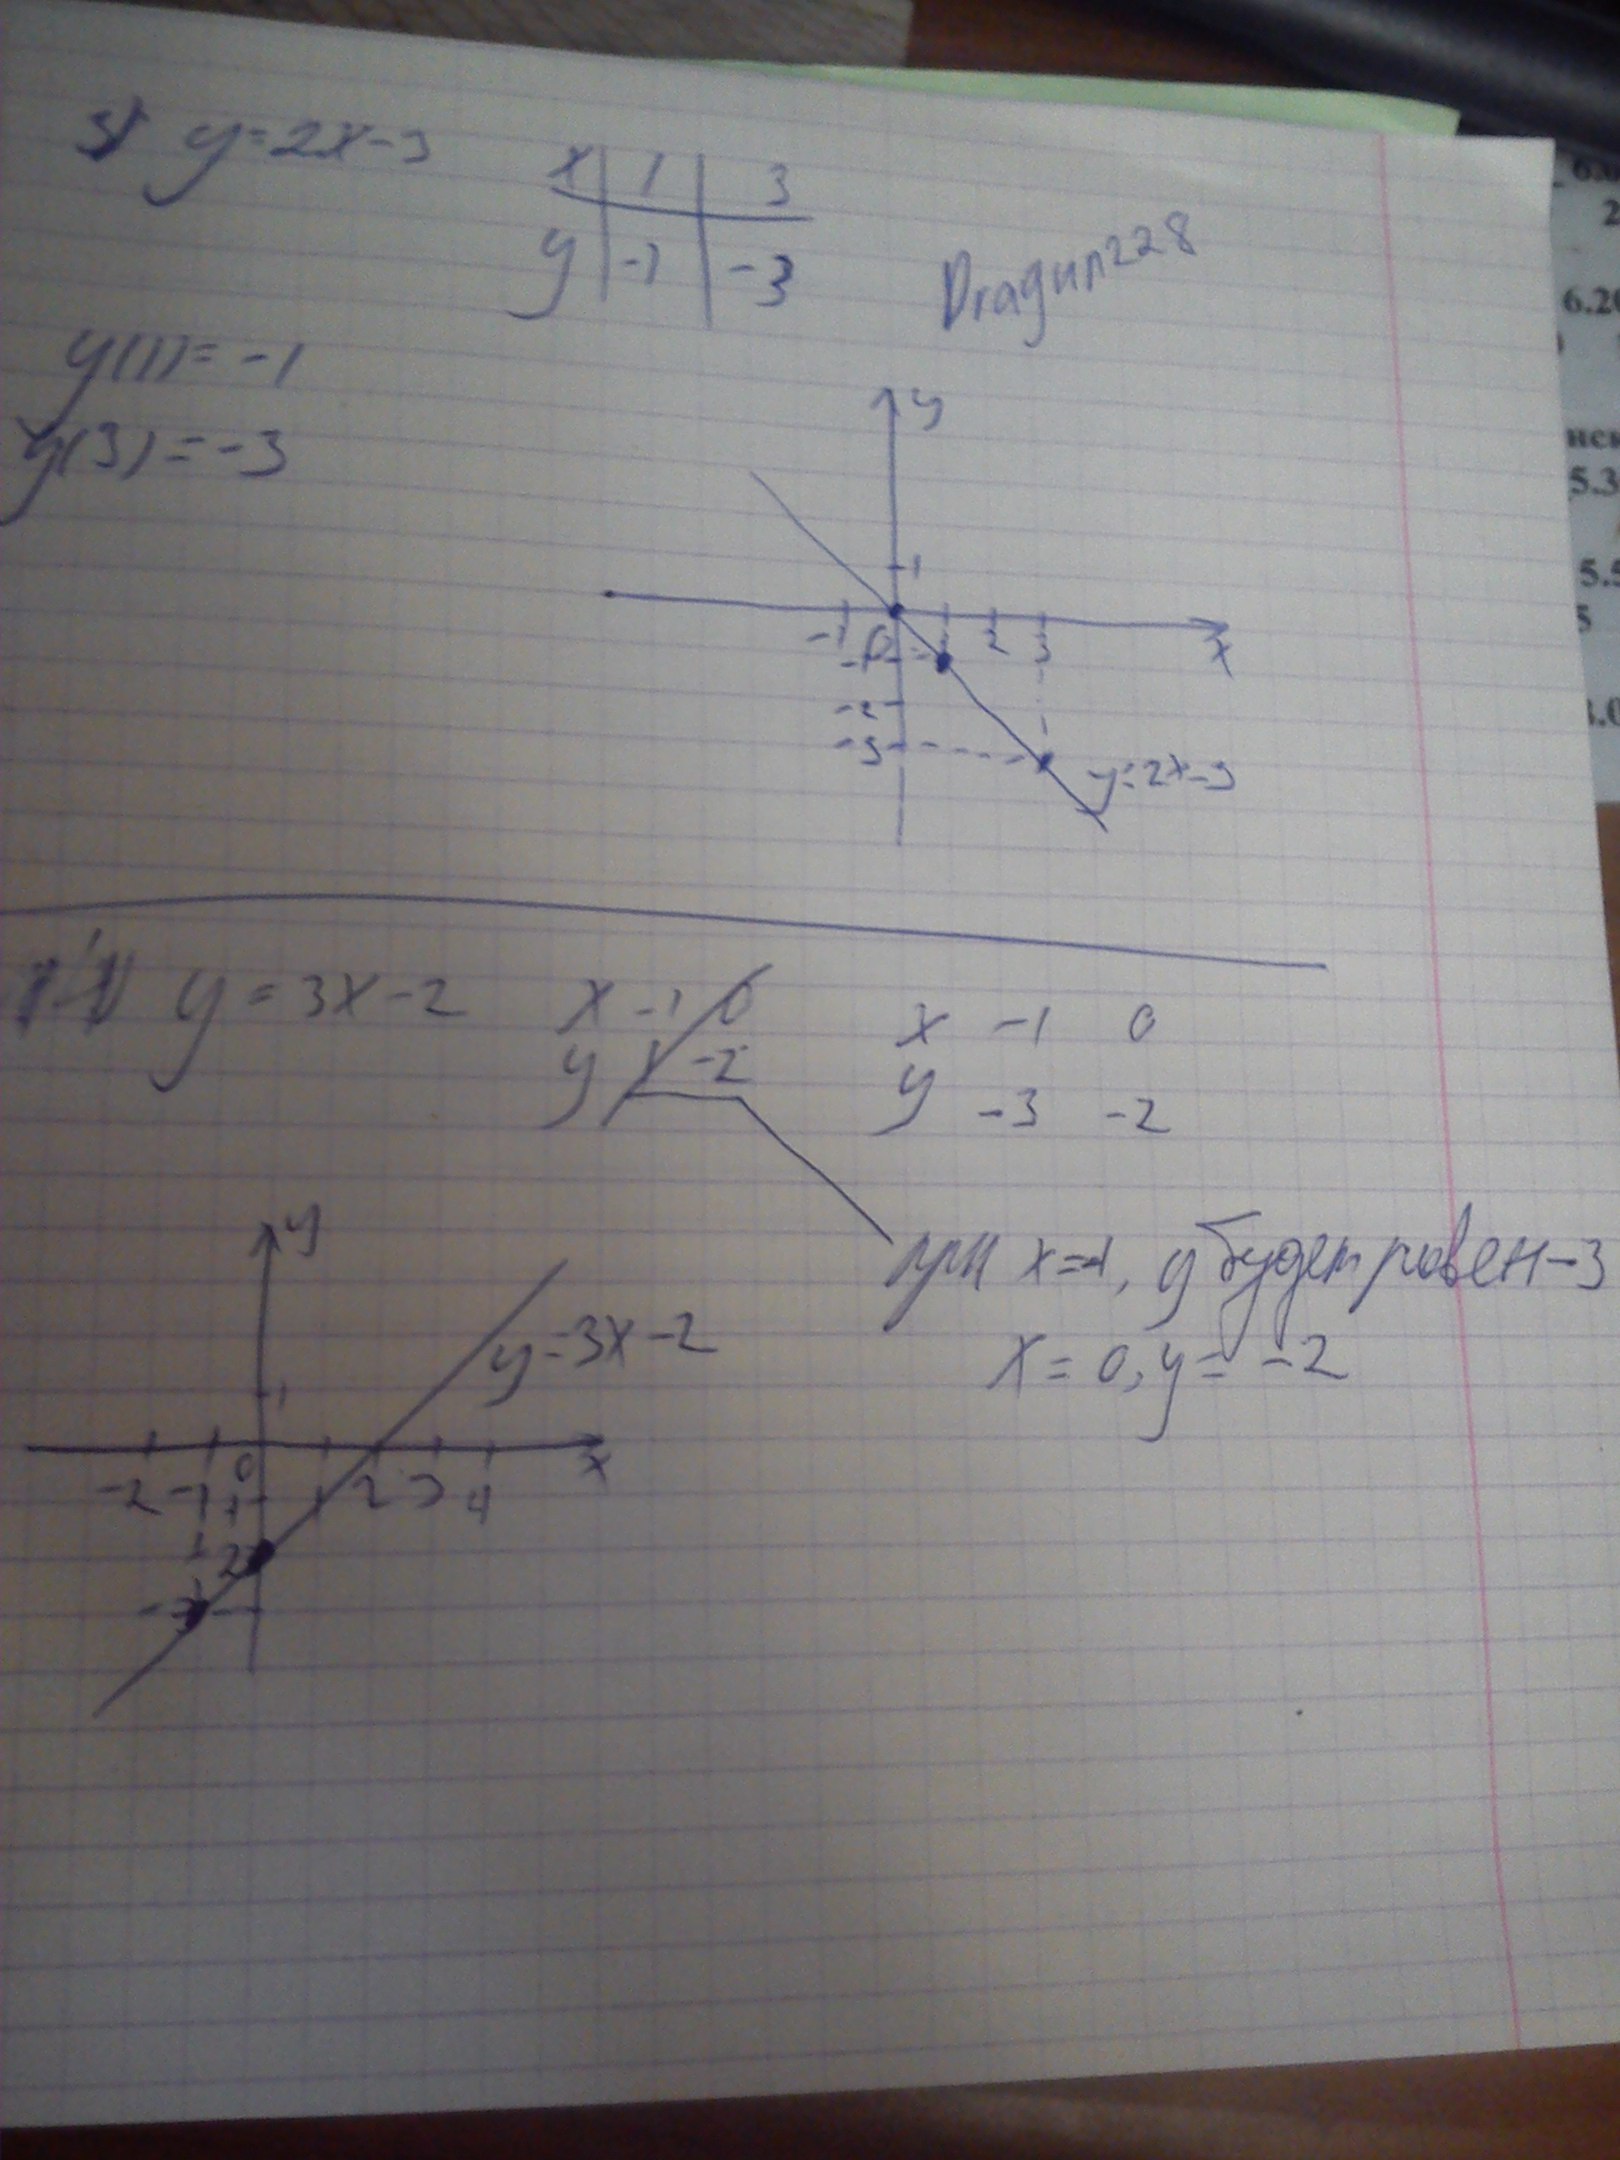 3) y=2x-3
x 1 3
y -1 -3
Dragun228
y(1)=-1
y(3)=-3
y
1
-1 0 1 2 3
x
-1
-2
-3
y=2x-3
y=3x-2
x -1 0
y 1 -2
x -1 0
y -3 -2
при x=-1, y будет равен -3
x=0, y=-2
y
y=3x-2
1
0
x
-2 -1 2 3 4
-1
-2
-3
6.20
5.3
5.5